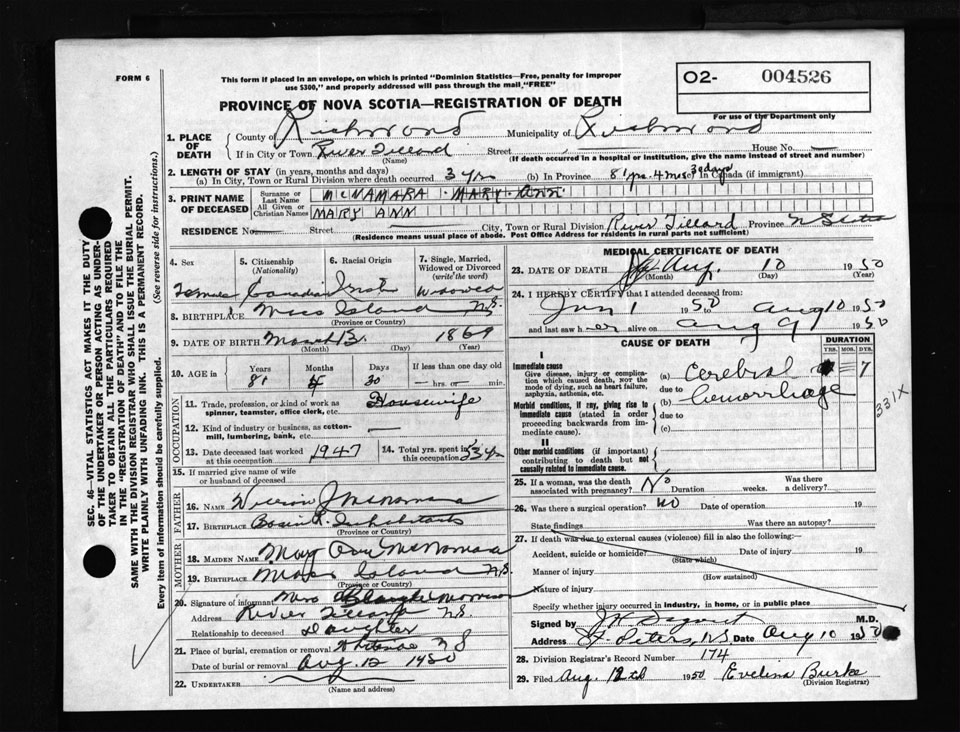 FORM 6
This form if placed in an envelope, on which is printed "Dominion Statistics—Free, penalty for improper
use $300," and properly addressed will pass through the mail, "FREE"
O2- 004526
For use of the Department only
PROVINCE OF NOVA SCOTIA—REGISTRATION OF DEATH
1. PLACE OF DEATH
County of Richmond Municipality of Richmond
If in City or Town River Tillard Street House No.
(Name) (If death occurred in a hospital or institution, give the name instead of street and number)
2. LENGTH OF STAY (in years, months and days)
(a) In City, Town or Rural Division where death occurred 3 yrs (b) In Province 81 yrs. 4 mos. 30 days In Canada (if immigrant)
3. PRINT NAME OF DECEASED
Surname or Last Name McNAMARA MARY ANN
All Given or Christian Names MARY ANN
RESIDENCE No. Street City, Town or Rural Division River Tillard Province N Scotia
(Residence means usual place of abode. Post Office Address for residents in rural parts not sufficient)
4. Sex Female
5. Citizenship (Nationality) Canadian
6. Racial Origin Irish
7. Single, Married, Widowed or Divorced (write the word) Widowed
8. BIRTHPLACE Island N.S.
(Province or Country)
9. DATE OF BIRTH March 1869
(Month) (Day) (Year)
10. AGE in Years 81 Months 4 Days 30 If less than one day old hrs. or min.
OCCUPATION
11. Trade, profession, or kind of work as spinner, teamster, office clerk, etc. Housewife
12. Kind of industry or business, as cotton-mill, lumbering, bank, etc. —
13. Date deceased last worked at this occupation 1947
14. Total yrs. spent in this occupation
15. If married give name of wife or husband of deceased
FATHER
16. NAME McNamara
17. BIRTHPLACE Inhabitants
MOTHER
18. MAIDEN NAME Mary Ann McNamara
19. BIRTHPLACE Island N.S.
(Province or Country)
20. Signature of informant Mrs Blanche Morrison
Address River Tillard N.S.
Relationship to deceased Daughter
21. Place of burial, cremation or removal N S
Date of burial or removal Aug. 12 1950
22. UNDERTAKER
(Name and address)
MEDICAL CERTIFICATE OF DEATH
23. DATE OF DEATH Aug. 10 1950
(Month) (Day) (Year)
24. I HEREBY CERTIFY that I attended deceased from:
Jan 1 1950 to Aug 10 1950
and last saw her alive on Aug 9 1950
CAUSE OF DEATH
DURATION
YRS. MOS. DYS.
I
Immediate cause
Give disease, injury or complication which caused death, nor the mode of dying, such as heart failure, asphyxia, asthenia, etc.
(a) Cerebral
due to
(b) hemorrhage
Morbid conditions, if any, giving rise to immediate cause (stated in order proceeding backwards from immediate cause).
due to
(c)
331X
II
Other morbid conditions (if important) contributing to death but not causally related to immediate cause.
25. If a woman, was the death associated with pregnancy? No Duration weeks. Was there a delivery?
26. Was there a surgical operation? NO Date of operation 19
State findings Was there an autopsy?
27. If death was due to external causes (violence) fill in also the following:
Accident, suicide or homicide? Date of injury 19
(State which)
Manner of injury
(How sustained)
Nature of injury
Specify whether injury occurred in industry, in home, or in public place
Signed by M.D.
Address St. Peters, N.S. Date Aug 10 1950
28. Division Registrar's Record Number 174
29. Filed Aug. 12th 1950 Evelina Burke
(Division Registrar)
SEC. 46—VITAL STATISTICS ACT MAKES IT THE DUTY
OF THE UNDERTAKER OR PERSON ACTING AS UNDER-
TAKER TO OBTAIN ALL THE PARTICULARS REQUIRED
IN THE "REGISTRATION OF DEATH" AND TO FILE THE
SAME WITH THE DIVISION REGISTRAR WHO SHALL ISSUE THE BURIAL PERMIT.
WRITE PLAINLY WITH UNFADING INK. THIS IS A PERMANENT RECORD.
Every item of information should be carefully supplied. (See reverse side for instructions.)